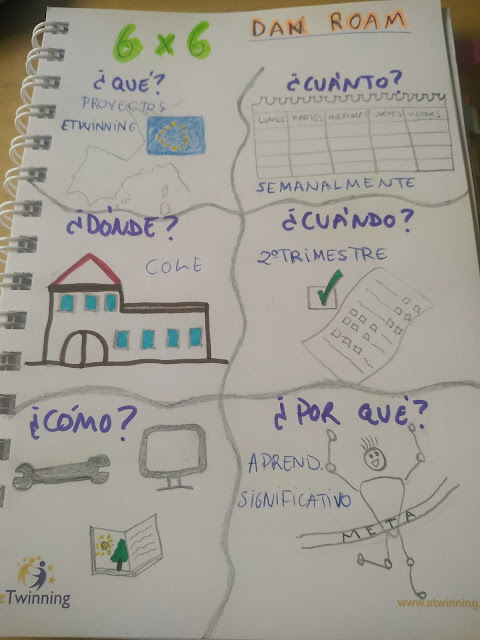 6 x 6
DAN ROAM
¿QUÉ?
PROYECTOS
ETWINNING
¿CUÁNTO?
LUNES MARTES MIÉRCOLES JUEVES VIERNES
SEMANALMENTE
¿DÓNDE?
COLE
¿CUÁNDO?
2º TRIMESTRE
¿CÓMO?
¿POR QUÉ?
APREND.
SIGNIFICATIVO
META
eTwinning
www.etwinning.